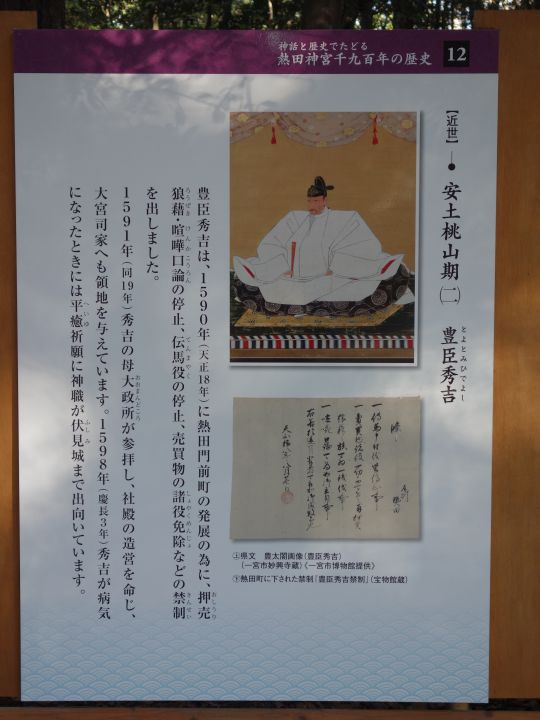 神話と歴史でたどる
熱田神宮千九百年の歴史
12
【近世】
安土桃山期(二) 豊臣秀吉
とよとみひでよし
豊臣秀吉は、1590年(天正18年)に熱田門前町の発展の為に、押売
おしうり
狼藉・喧嘩口論の停止、伝馬役の停止、売買物の諸役免除などの禁制
ろうぜき けんかこうろん てんまやく しょやくめんじょ きんせい
を出しました。
1591年(同19年)秀吉の母大政所が参拝し、社殿の造営を命じ、
おおまんどころ
大宮司家へも領地を与えています。1598年(慶長3年)秀吉が病気
になったときには平癒祈願に神職が伏見城まで出向いています。
へいゆ ふしみ
㊤県文 豊太閤画像(豊臣秀吉)
(一宮市妙興寺蔵)《一宮市博物館提供》
㊦熱田町に下された禁制「豊臣秀吉禁制」(宝物館蔵)